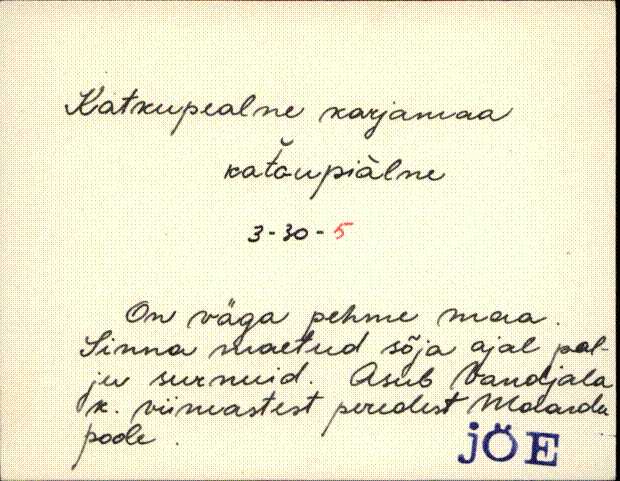 Katkupealne karjamaa
3-30-5
On väga pehme maa.
Sinna maetud sõja ajal pal-
ju surnuid. Asub Vandjala
k. viimastest peredest
poole.
JÖE